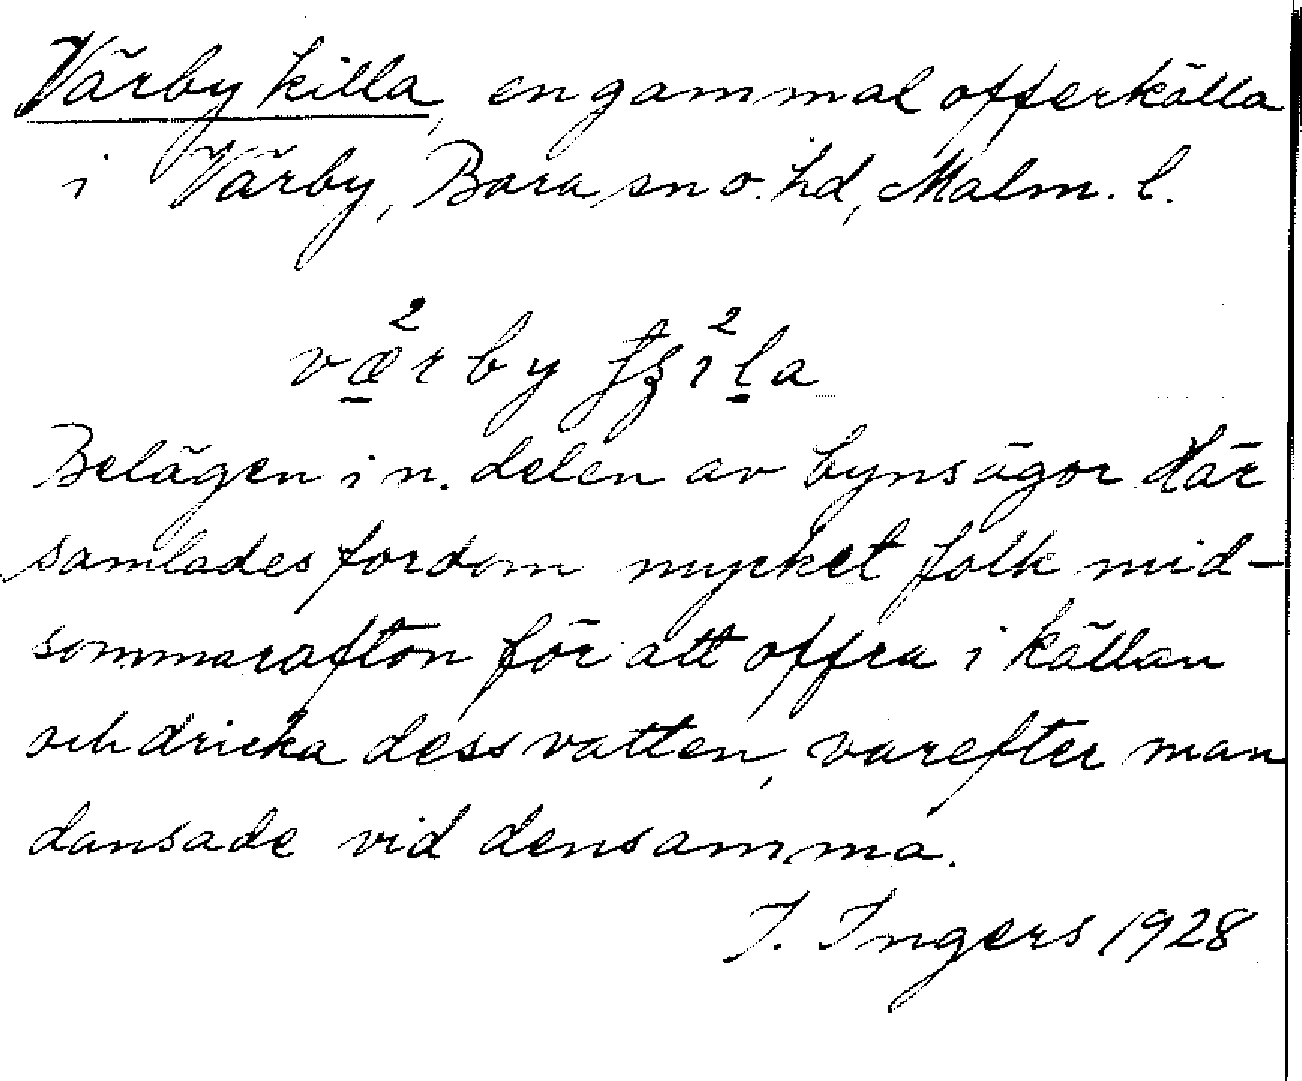 Värby killa, en gammal offerkälla
i Värby, Bara sn o. hd, Malm. l.
væ²rby
Belägen i n. delen av byns ägor där
samlades fordom mycket folk mid-
sommarafton för att offra i källan
och dricka dess vatten, varefter man
dansade vid densamma.
I. Ingers 1928